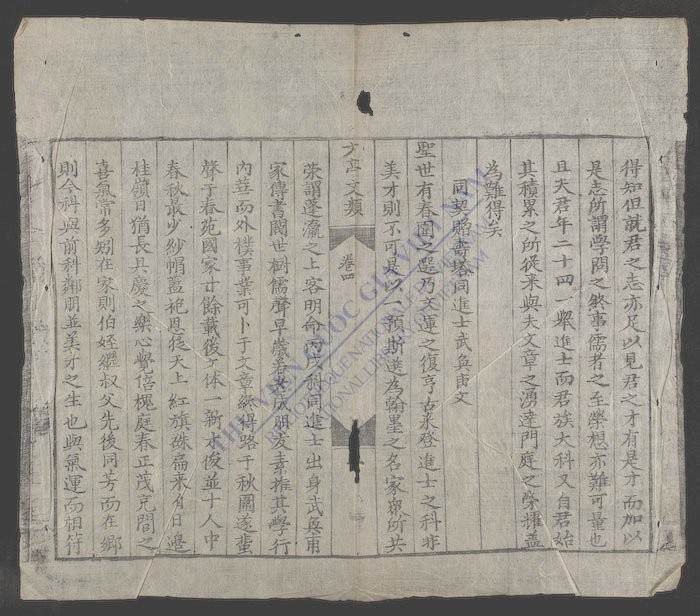 得知但就君之志亦足以見君之才有是才而加以
是志所謂學問之終事儒者之至榮想亦難可量也
且夫君年二十四一舉進士而君族大科又自君始
其積累之所從來與夫文章之湧達門庭之榮耀蓋
為難得矣
同契賀壽塔同進士武奐甫文
聖世有春闈之選乃文運之復亨古來登進士之科非
美才則不可是以一預斯選為翰墨之名家眾所共
方亭文類
卷四
榮謂蓬瀛之上客明命丙戌科同進士出身武奐甫
家傳書閥世樹儒聲早榮若老成朋友素推其學行
內莊而外樸事業可卜于文章纔得路于秋圍遂蜚
聲于春苑國家廿餘載後文体一新才俊並十人中
春秋最少紗帽藍袍恩從天上紅旗姝扁来自日邊
桂嶺日猶長具慶之樂心覺倍槐庭春正茂充閭之
喜氣常多矧在家則伯姪繼叔父先後同芳而在鄉
則今科與前科鄰朋並美才之生也與氣運而相符
THƯ VIỆN QUỐC GIA VIỆT NAM
BIBLIOTHÈQUE NATIONALE DU VIETNAM
NATIONAL LIBRARY OF VIETNAM